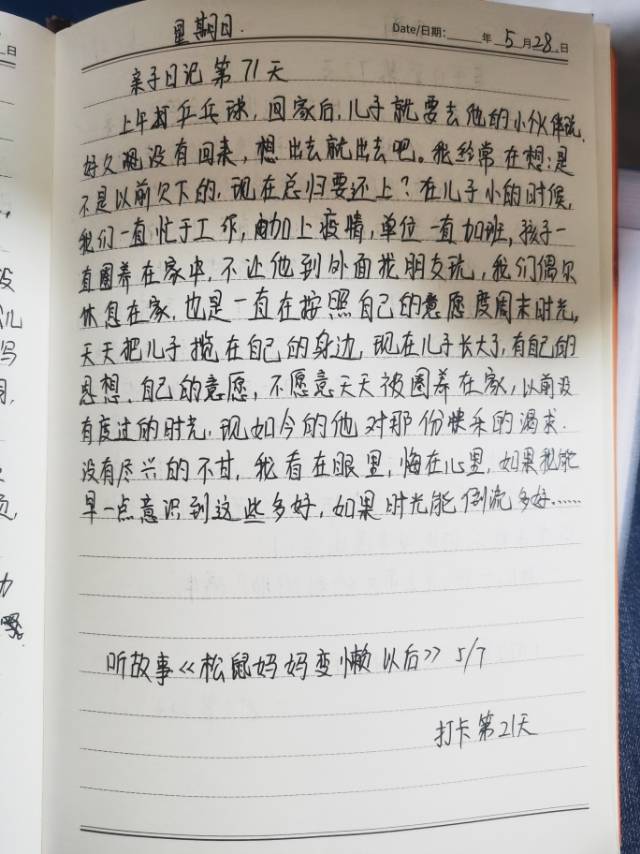 日
星期日.
Date/日期: 年 5 月 28 日
亲子日记 第 71 天
上午打乒乓球, 回家后, 儿子就要去他的小伙伴玩,
好久都没有回来, 想出去就出去吧。我经常在想:是
不是以前欠下的, 现在总归要还上? 在儿子小的时候,
我们一直忙于工作, 加上疫情, 单位一直加班, 孩子一
直圈养在家中, 不让他到外面找朋友玩, 我们偶尔
休息在家, 也是一直在按照自己的意愿度周末时光,
天天把儿子揽在自己的身边, 现在儿子长大了, 有自己的
思想、自己的意愿, 不愿意天天被圈养在家, 以前没
有度过的时光, 现如今的他对那份快乐的渴求.
没有尽兴的不甘, 我看在眼里, 悔在心里, 如果我能
早一点意识到这些多好, 如果时光能倒流多好……
听故事《松鼠妈妈变懒以后》 5/7
打卡第21天